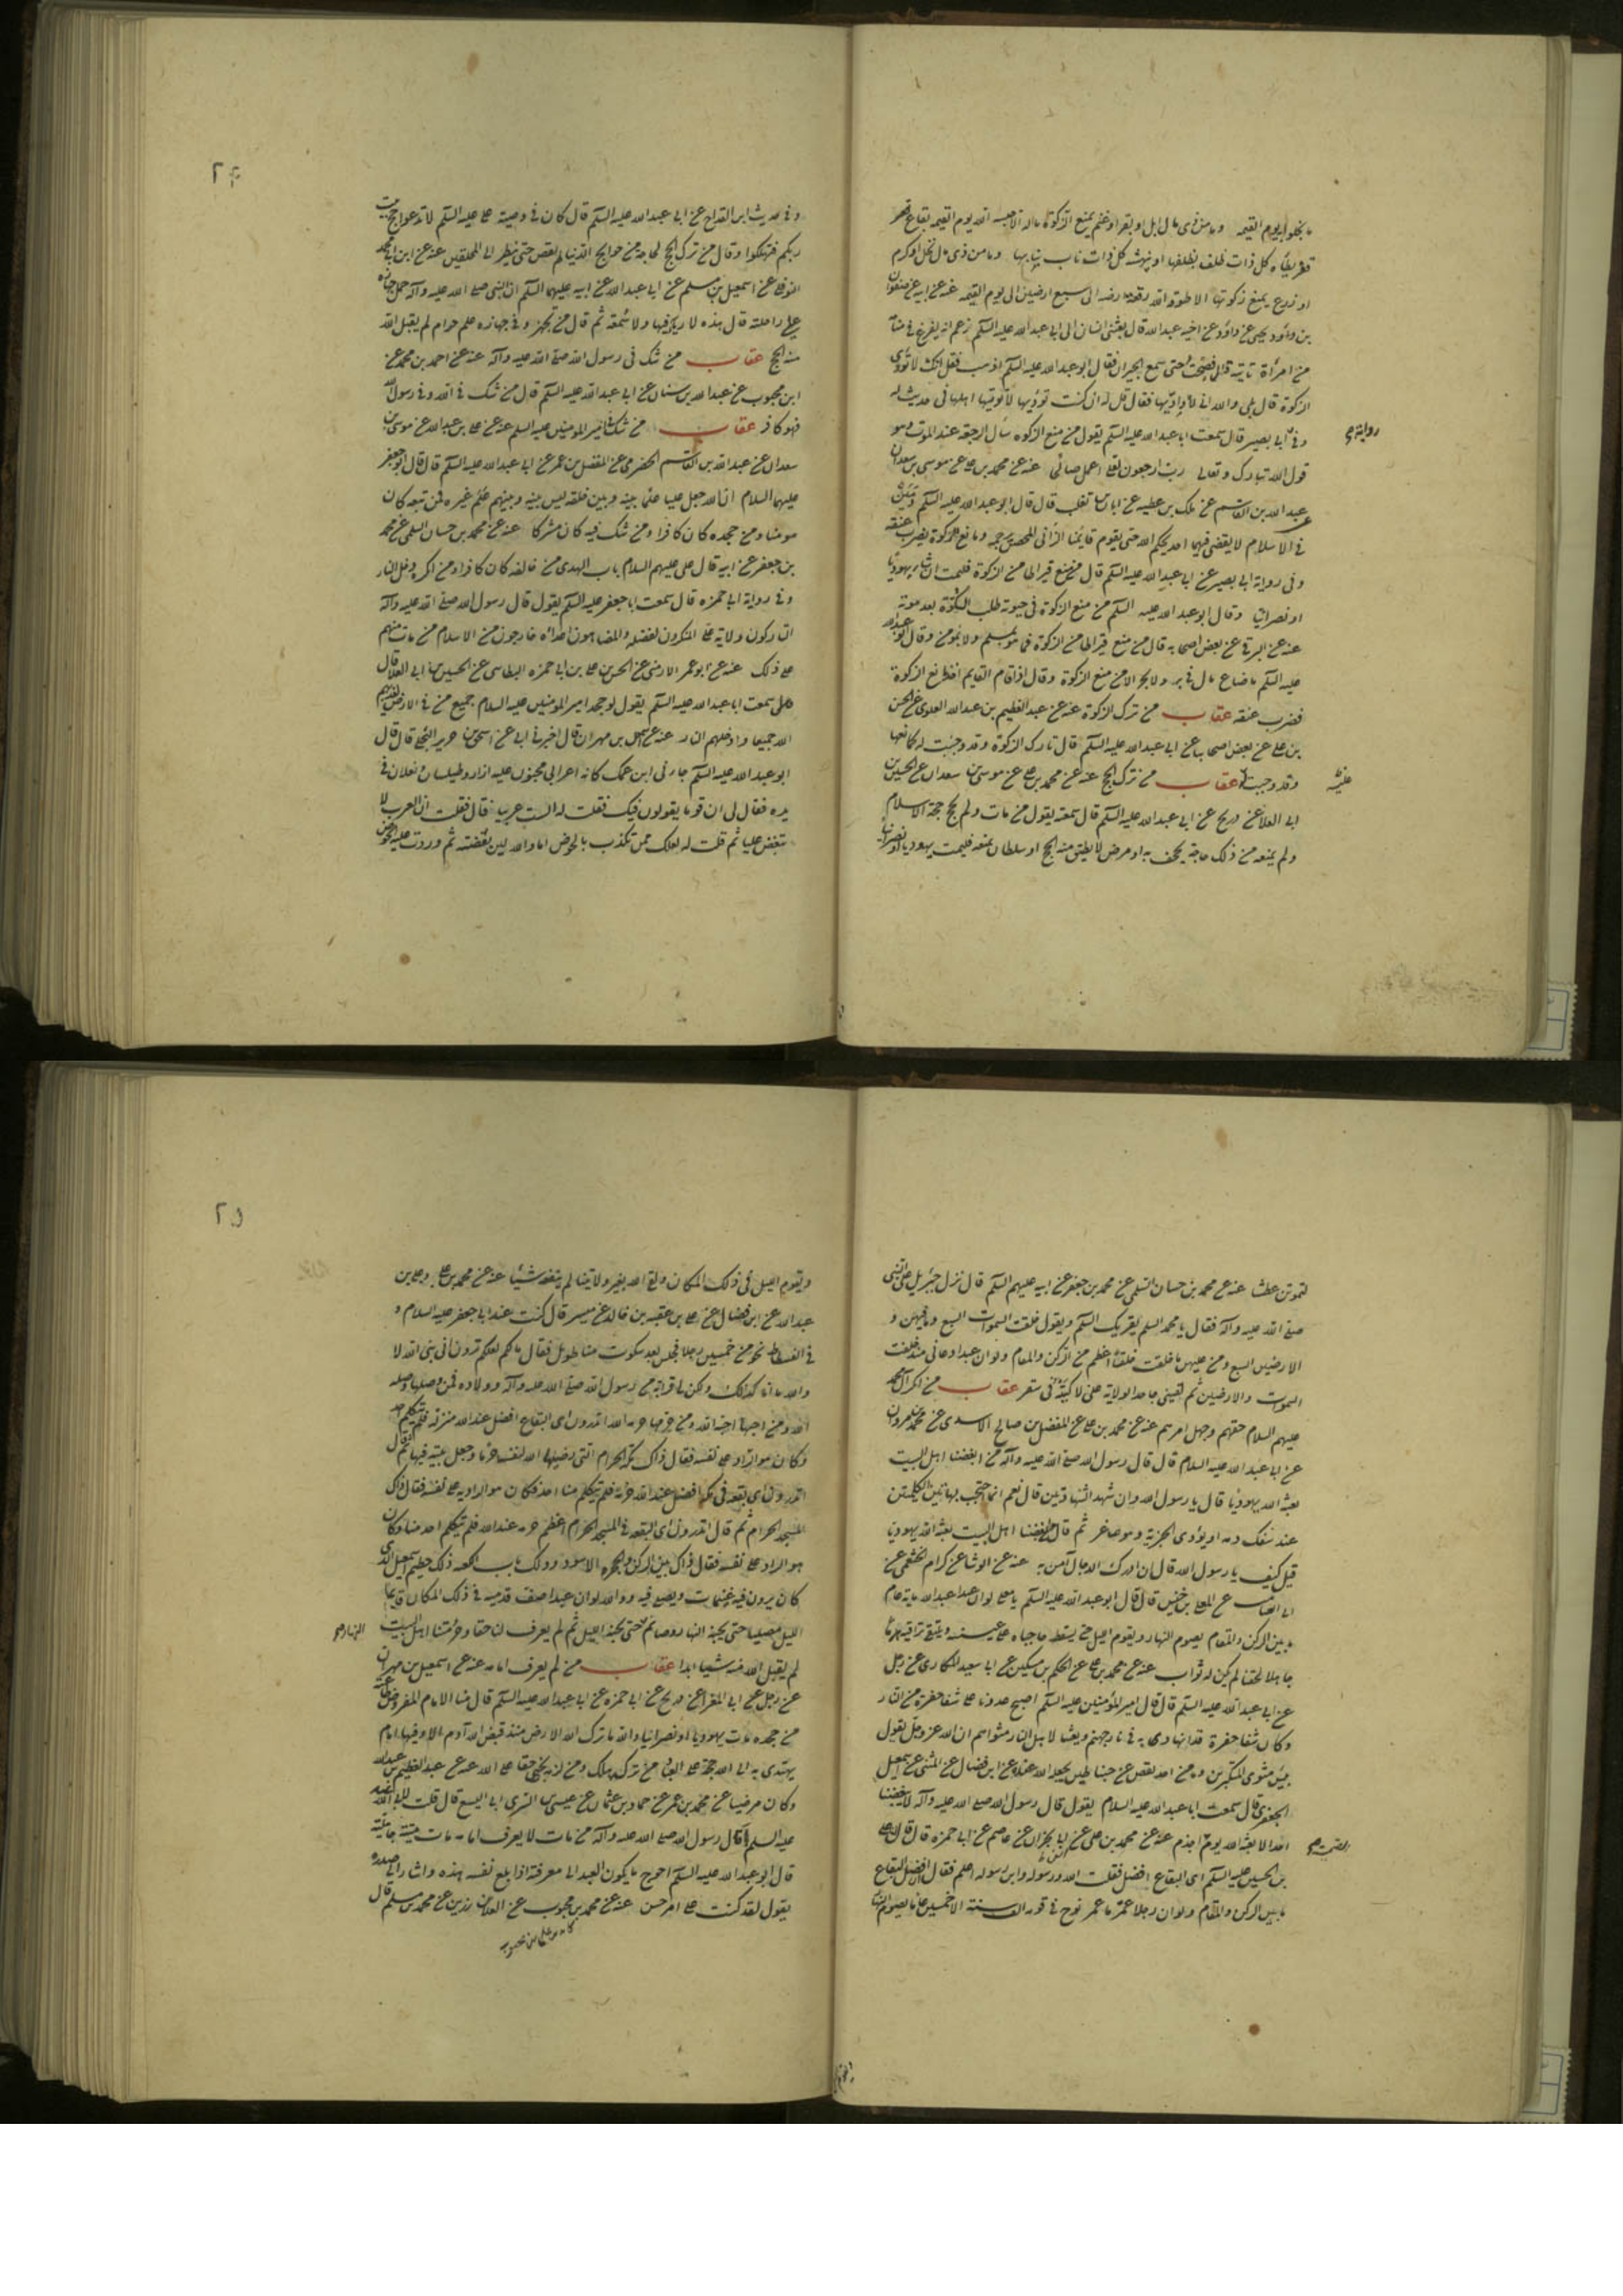 ما بخلوا به يوم القيمة وما من ذى مال ابل او بقر او غنم يمنع الزكوة ماله الا حبسه الله يوم القيمة بقاع قفر
كل ذات ظلف بظلفها او ينهشه كل ذات ناب بنابها وما من ذى مال نخل او كرم
او زرع يمنع زكوتها الا طوقه الله ارضه الى سبع ارضين الى يوم القيمة عنه عن ابيه عن صفوان
بن داود عن اخيه عبدالله قال بعثنى انسان الى ابى عبدالله عليه السلم زعم انه يفزع فى منامه
من امراة تاتيه قال فصحت حتى سمع الجيران فقال ابو عبدالله عليه السلم اذهب فقل انك لا تؤدى
الزكوة قال بلى والله انى لاؤديها فقال قل له ان كنت تؤديها لا تؤتيها اهلها فى حديث له
رواية
وفى ابى بصير قال سمعت ابا عبدالله عليه السلم يقول من منع الزكوة سال الرجعة عند الموت وهو
قول الله تبارك وتعالى رب ارجعون لعلى اعمل صالحا عنه عن محمد بن على عن موسى بن سعدان
عن عبدالله بن القاسم عن ملك بن عطيه عن ابان بن تغلب قال قال ابو عبدالله عليه السلم
فى الاسلام لا يقضى فيهما احد بحكم الله حتى يقوم قايمنا الزانى المحصن يرجمه ومانع الزكوة يضرب عنقه
وفى رواية ابى بصير عن ابى عبدالله عليه السلم قال من منع قيراطا من الزكوة فليمت ان شاء يهوديا
او نصرانيا وقال ابو عبدالله عليه السلم من منع الزكوة فى حيوته طلب الكرة بعد موته
عنه عن البرقى عن بعض اصحابه قال من منع قيراطا من الزكوة فما هو بمسلم ولا بمؤمن وقال ابو عبدالله
عليه السلم ما ضاع مال فى بر ولا بحر الا من منع الزكوة وقال اذا قام القايم اخذ مانع الزكوة
فضرب عنقه عقاب من ترك الزكوة عنه عن عبد العظيم بن عبدالله العلوى عن الحسن
بن على عن بعض اصحابنا عن ابى عبدالله عليه السلم قال تارك الزكوة وقد وجبت له كمانعها
وقد وجبت عليه عقاب من ترك الحج عنه عن محمد بن على عن موسى بن سعدان عن الحسين
ابى العلا عن ذريح عن ابى عبدالله عليه السلم قال سمعته يقول من مات ولم يحج حجة الاسلام
ولم يمنعه من ذلك حاجة يجحف به او مرض لا يطيق منه الحج او سلطان يمنعه فليمت يهوديا او نصرانيا
۲۴
وفى حديث ابن القداح عن ابى عبدالله عليه السلم قال كان فى وصية على عليه السلم لا تدعوا حج بيت
ربكم فتهلكوا وقال من ترك الحج لحاجة من حوايج الدنيا لم تقض حتى ينظر الى المحلقين عنه عن ابن ابى نجد
النوفلى عن اسمعيل بن مسلم عن ابى عبدالله عن ابيه عليهما السلم ان النبى صلى الله عليه وآله حمل جهازه
على راحلته قال هذه لا ريا فيها ولا سمعة ثم قال من تجهز وفى جهازه علم حرام لم يقبل الله
منه الحج عقاب من شك فى رسول الله صلى الله عليه وآله عنه عن احمد بن محمد عن
ابن محبوب عن عبدالله بن سنان عن ابى عبدالله عليه السلم قال من شك فى الله وفى رسوله
فهو كافر عقاب من شك فى امير المومنين عليه السلم عنه عن على بن عبدالله عن موسى بن
سعدان عن عبدالله بن القاسم الحضرمى عن المفضل بن عمر عن ابى عبدالله عليه السلم قال قال ابو جعفر
عليهما السلام ان الله جعل عليا علما بينه وبين خلقه ليس بينه وبينهم علم غيره فمن تبعه كان
مومنا ومن جحده كان كافرا ومن شك فيه كان مشركا عنه عن محمد بن حسان السلمى عن محمد
بن جعفر عن ابيه قال على عليهم السلام باب الهدى من خالفه كان كافرا ومن انكره دخل النار
وفى رواية ابى حمزه قال سمعت ابا جعفر عليه السلم يقول قال رسول الله صلى الله عليه وآله
التاركون ولاية على المنكرون لفضله والمضاهون اعداه خارجون من الاسلام من مات منهم
على ذلك عنه عن ابو عمر الارمنى عن الحسن بن على بن ابى حمزه البطاينى عن الحسين بن ابى العلا قال
سمعت ابا عبدالله عليه السلم يقول لو جحد امير المومنين عليه السلام جميع من فى الارض لعذبهم
الله جميعا وادخلهم النار عنه عن اسمعيل بن مهران قال اخبرنى ابى عن اسحق بن جرير البجلى قال قال
ابو عبدالله عليه السلم جاءنى ابن عمك كانه اعرابى مجنون عليه ازار وطيلسان ونعلان فى
يده فقال لى ان قوما يقولون فيك فقلت له الست عربيا فقال فقلت ان العرب لا
تبغض عليا ثم قلت له لعلك ممن تكذب بالحوض اما والله لين بغضته ثم وردت عليه الحوض
لتموتن عطشا عنه عن محمد بن حسان السلمى عن محمد بن جعفر عن ابيه عليهم السلم قال نزل جبرئيل على النبى
صلى الله عليه وآله فقال يا محمد السلم يقريك السلم ويقول خلقت السموات السبع وما فيهن و
الارضين السبع ومن عليهن وما خلقت خلقا اعظم من الركن والمقام ولو ان عبدا دعانى منذ خلقت
السموات والارضين ثم لقينى جاحدا لولاية على لاكببته فى سقر عقاب من انكر آل محمد
عليهم السلام حقهم وجهل امرهم عنه عن محمد بن على عن المفضل بن صالح الاسدى عن محمد بن مروان
عن ابى عبدالله عليه السلام قال قال رسول الله صلى الله عليه وآله من ابغضنا اهل البيت
بعثه الله يهوديا قال يا رسول الله وان شهد الشهادتين قال نعم انما احتجب بهاتين الكلمتين
عند سفك دمه او يؤدى الجزية وهو صاغر ثم قال من ابغضنا اهل البيت بعثه الله يهوديا
قيل كيف يا رسول الله قال ان ادرك الدجال آمن به عنه عن الوشا عن كرام الخثعمى عن
ابى الصامت عن المعلى بن خنيس قال قال ابو عبدالله عليه السلم يا معلى لو ان عبدا عبد الله ماية عام
ما بين الركن والمقام يصوم النهار ويقوم الليل حتى يسقط حاجباه على عينيه ويلتقى تراقيه هرما
جاهلا لحقنا لم يكن له ثواب عنه عن محمد بن على عن الحكم بن مسكين عن ابى سعيد المكارى عن رجل
عن ابى عبدالله عليه السلم قال قال امير المؤمنين عليه السلم اصبح عدونا على شفا حفرة من النار
وكان شفا حفرة قد انهارت به فى نار جهنم وتعسا لاهل النار مثواهم ان الله عز وجل يقول
بئس مثوى المتكبرين وما من احد نقص عن حبنا عنه عن ابن فضال عن المثنى عن اسمعيل
الجعفرى قال سمعت ابا عبدالله عليه السلام يقول قال رسول الله صلى الله عليه وآله لا يبغضنا
احد الا بعثه الله يوم القيمة اجذم عنه عن محمد بن على عن ابن ابى نجران عن عاصم عن ابى حمزه قال قال على
بن الحسين عليه السلم اى البقاع افضل فقلت الله ورسوله وابن رسوله اعلم فقال افضل البقاع
ما بين الركن والمقام ولو ان رجلا عمر ما عمر نوح فى قومه الف سنة الا خمسين عاما يصوم النهار
۲۵
ويقوم الليل فى ذلك المكان ولقى الله بغير ولايتنا لم ينفعه شيئا عنه عن محمد بن على وعلى بن
عبدالله عن ابن فضال عن على بن عقبه بن خالد عن ميسر قال كنت عند ابى جعفر عليه السلام و
فى الفسطاط نحو من خمسين رجلا فجلس بعد سكوت منا طويل فقال ما لكم لعلكم ترون انى نبى الله لا
والله ما انا كذلك ولكن لى قرابة من رسول الله صلى الله عليه وآله وولادة فمن وصلها وصله
الله ومن احبها احبه الله ومن حرمها حرمه الله اتدرون اى البقاع افضل عند الله منزلة فلم يتكلم احد
وكان هو الراد على نفسه فقال ذاك مكة الحرام التى رضيها الله لنفسه حرما وجعل بيته فيها ثم قال
اتدرون اى بقعة فى مكة افضل عند الله حرمة فلم يتكلم منا احد فكان هو الراد على نفسه فقال ذاك
المسجد الحرام ثم قال اتدرون اى البقعة فى المسجد الحرام اعظم حرمة عند الله فلم يتكلم احد منا وكان
هو الراد على نفسه فقال ذاك بين الركن والحجر الاسود وذلك باب الكعبة ذلك حطيم اسمعيل الذى
كان يزود فيه غنيماته ويصلى فيه ووالله لو ان عبدا صف قدميه فى ذلك المكان قايما
الليل مصليا حتى يجنه النهار وصايما حتى يجنه الليل ثم لم يعرف لنا حقا وحرمتنا اهل البيت
لم يقبل الله منه شيئا ابدا عقاب من لم يعرف امامه عنه عن اسمعيل بن مهران
عن رجل عن ابى المغرا عن ذريح عن ابى حمزه عن ابى عبدالله عليه السلم قال منا الامام المفروض طاعته
من جحده مات يهوديا او نصرانيا والله ما ترك الله الارض منذ قبض الله آدم الا وفيها امام
يهتدى به الى الله حجة على العباد من تركه هلك ومن لزمه نجى حقا على الله عنه عن عبد العظيم بن عبدالله
وكان مرضيا عن محمد بن عمر عن حماد بن عثمان عن عيسى بن السرى ابى اليسع قال قلت لابى عبدالله
عليه السلم قال رسول الله صلى الله عليه وآله من مات لا يعرف امامه مات ميتة جاهلية
قال ابو عبدالله عليه السلم احوج ما يكون العبد الى معرفته اذا بلغ نفسه هذه واشار الى صدره
يقول لقد كنت على امر حسن عنه عن محمد بن على بن محبوب عن العلا بن رزين عن محمد بن مسلم قال